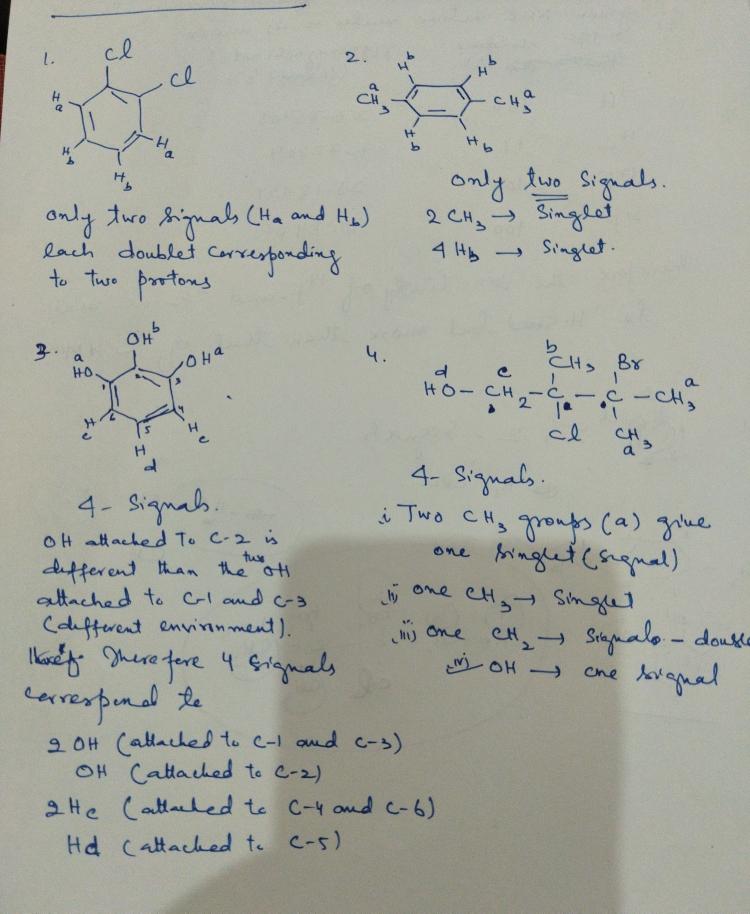 1.
Cl
Cl
Ha
Hb
Hb
Ha
only two signals (Ha and Hb)
each doublet corresponding
to two protons
2.
Hb
Hb
CH₃ a
CH₃ a
Hb
Hb
only two signals.
2 CH₃ → Singlet
4 Hb → Singlet.
3.
OH b
HO a
OH a
1
2
3
4
5
6
H c
H c
H d
4 - Signals.
OH attached to C-2 is
different than the two OH
attached to C-1 and C-3
(different environment).
Therefore 4 signals
correspond to
2 OH (attached to C-1 and C-3)
OH (attached to C-2)
2Hc (attached to C-4 and C-6)
Hd (attached to C-5)
4.
d c b a
HO - CH₂ - C - C - CH₃
CH₃ Br
Cl CH₃
a
4 - Signals.
i Two CH₃ groups (a) give
one singlet (signal)
ii) one CH₃ → Singlet
iii) one CH₂ → Signals - double
iv) OH → one signal